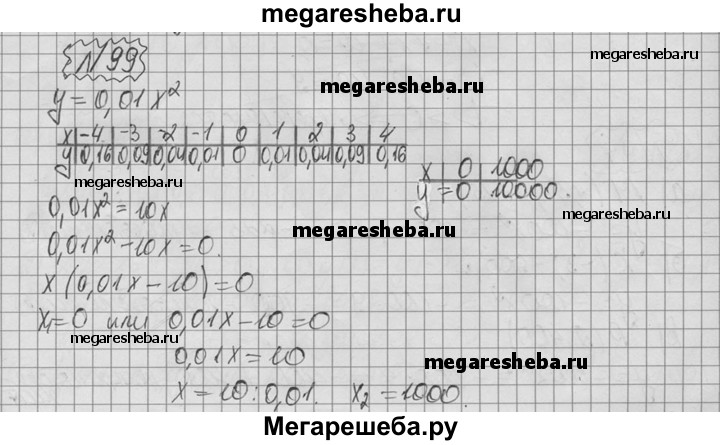 megaresheba.ru
N 99
megaresheba.ru
y = 0,01x²
megaresheba.ru
x -4 -3 -2 -1 0 1 2 3 4
y 0,16 0,09 0,04 0,01 0 0,01 0,04 0,09 0,16
x 0 1000
y = 0 10000.
0,01x² = 10x
megaresheba.ru
0,01x² - 10x = 0.
megaresheba.ru
x (0,01x - 10) = 0.
x₁ = 0 или 0,01x - 10 = 0
megaresheba.ru
0,01x = 10
megaresheba.ru
x = 10 : 0,01. x₂ = 1000.
Мегарешеба.ру